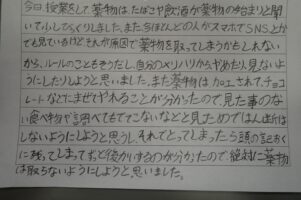 今日授業をして薬物は、たばこや飲酒が薬物の始まりと聞
いて少しびっくりしました。また今ほとんどの人がスマホでSNSとか
でも見ているけどそれが原因で薬物を取ってしまうかもしれない
から、ルールのこともそうだし、自分のメリハリからやめたり、見ない
ようにしたりしようと思いました。また薬物は加工されて、チョコ
レートなどにまぜてやれることが分かったので、見た事のな
い食べ物や調べてもでてこないなどと見ためではんだんは
しないようにしようと思うし、それでとってしまったら頭の記おく
に残ってしまってずっと後かいするのが分かったので絶対に薬物
は取らないようにしようと思いました。